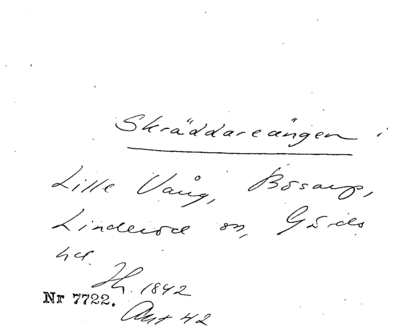 Skräddareängen i
Lille Vång, Bosarp,
Linderöd sn, Gärds
hd.
Lh. 1842
Nr 7722.
Akt 42